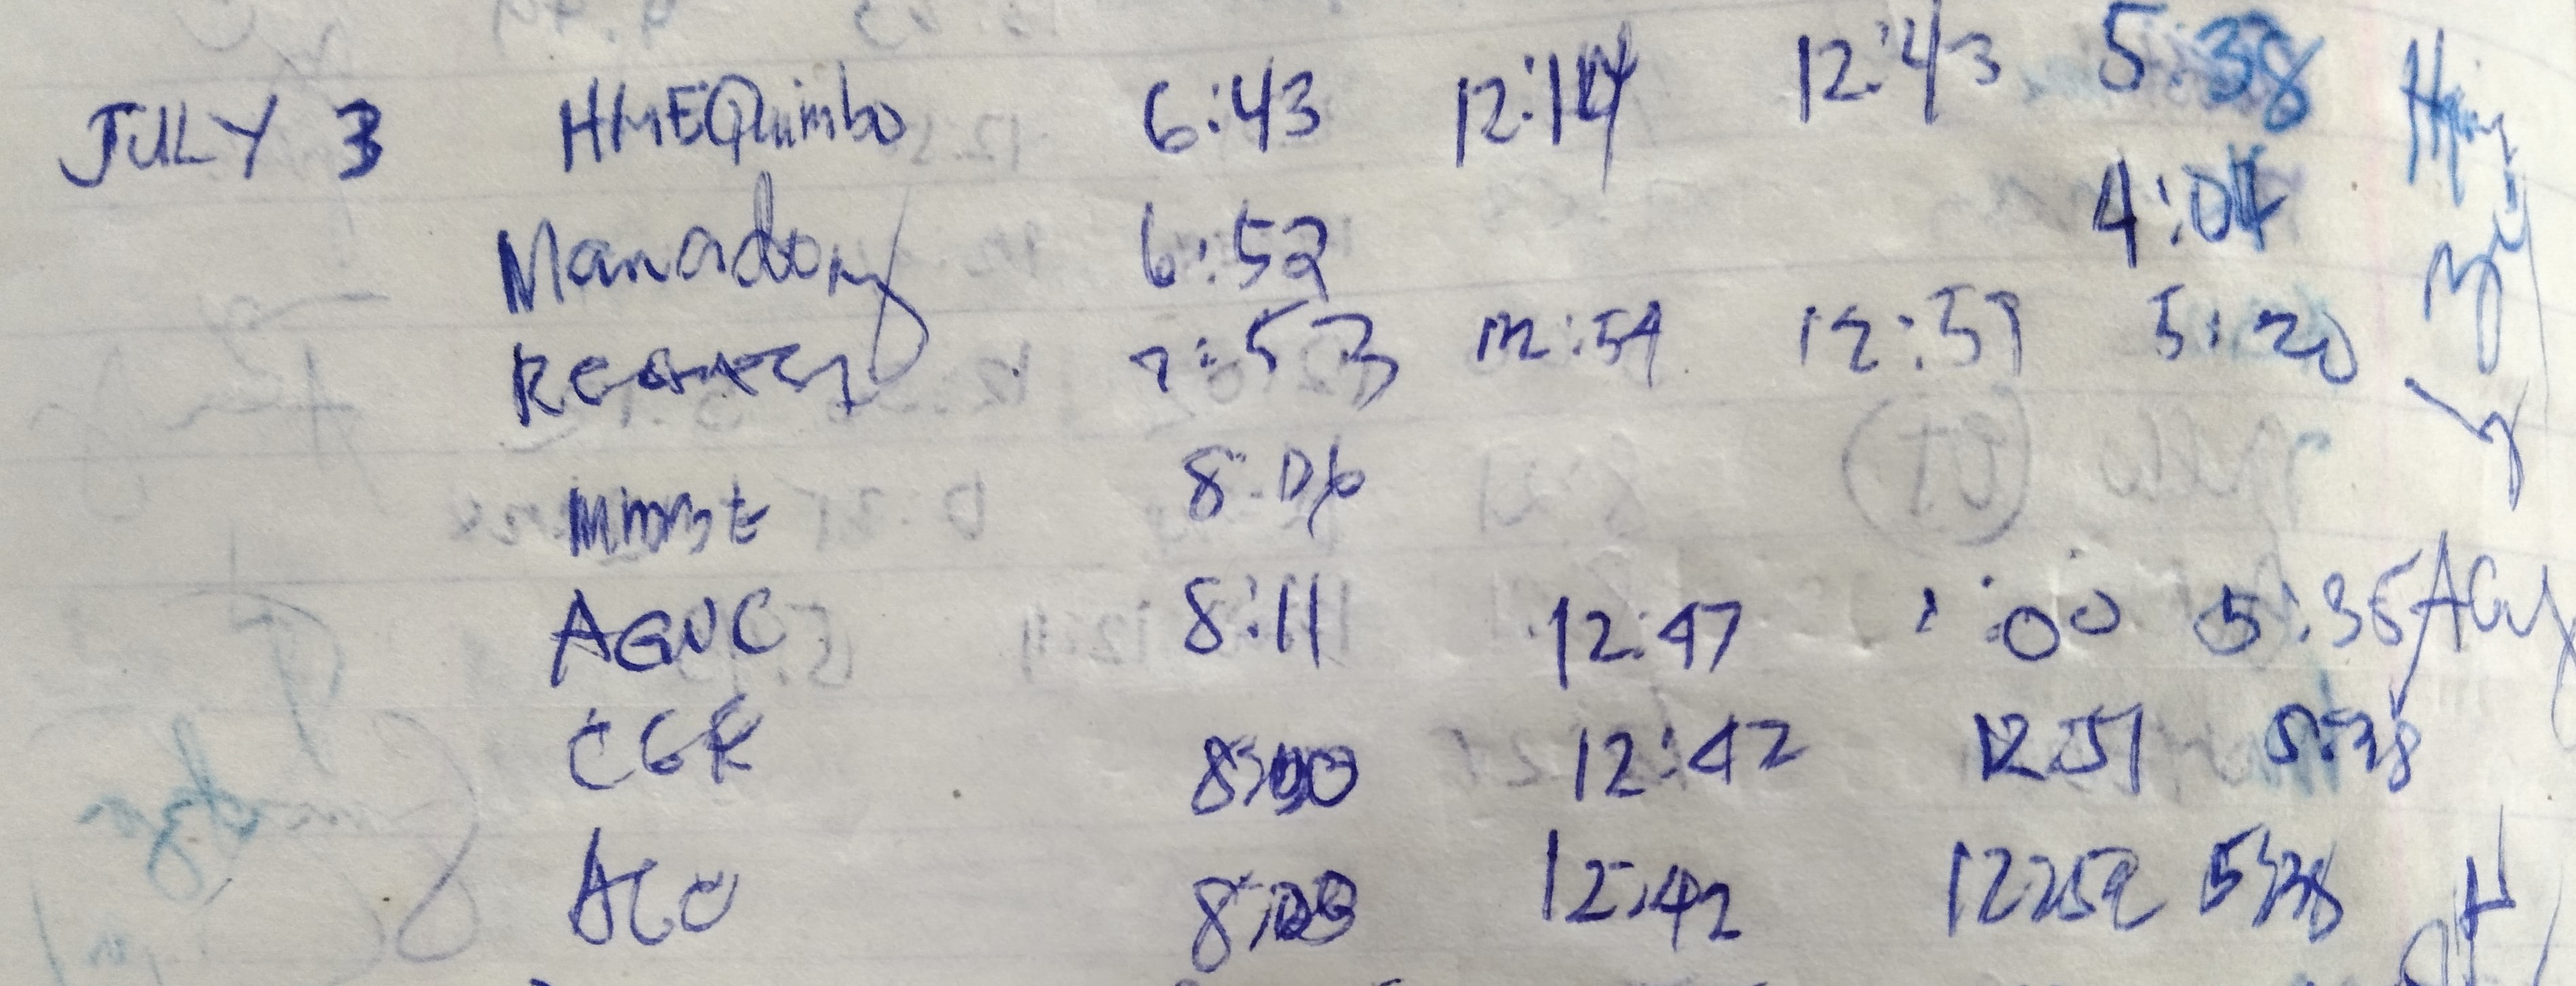 JULY 3 HMEQuimbo 6:43 12:14 12:43 5:38
Manadong 6:52 4:04
7:53 12:54 12:59 5:20
8:06
AGNC 8:11 12:47 1:00 5:35
CGR 8:00 12:42 12:51 5:38
ACO 12:42 12:52 5:38